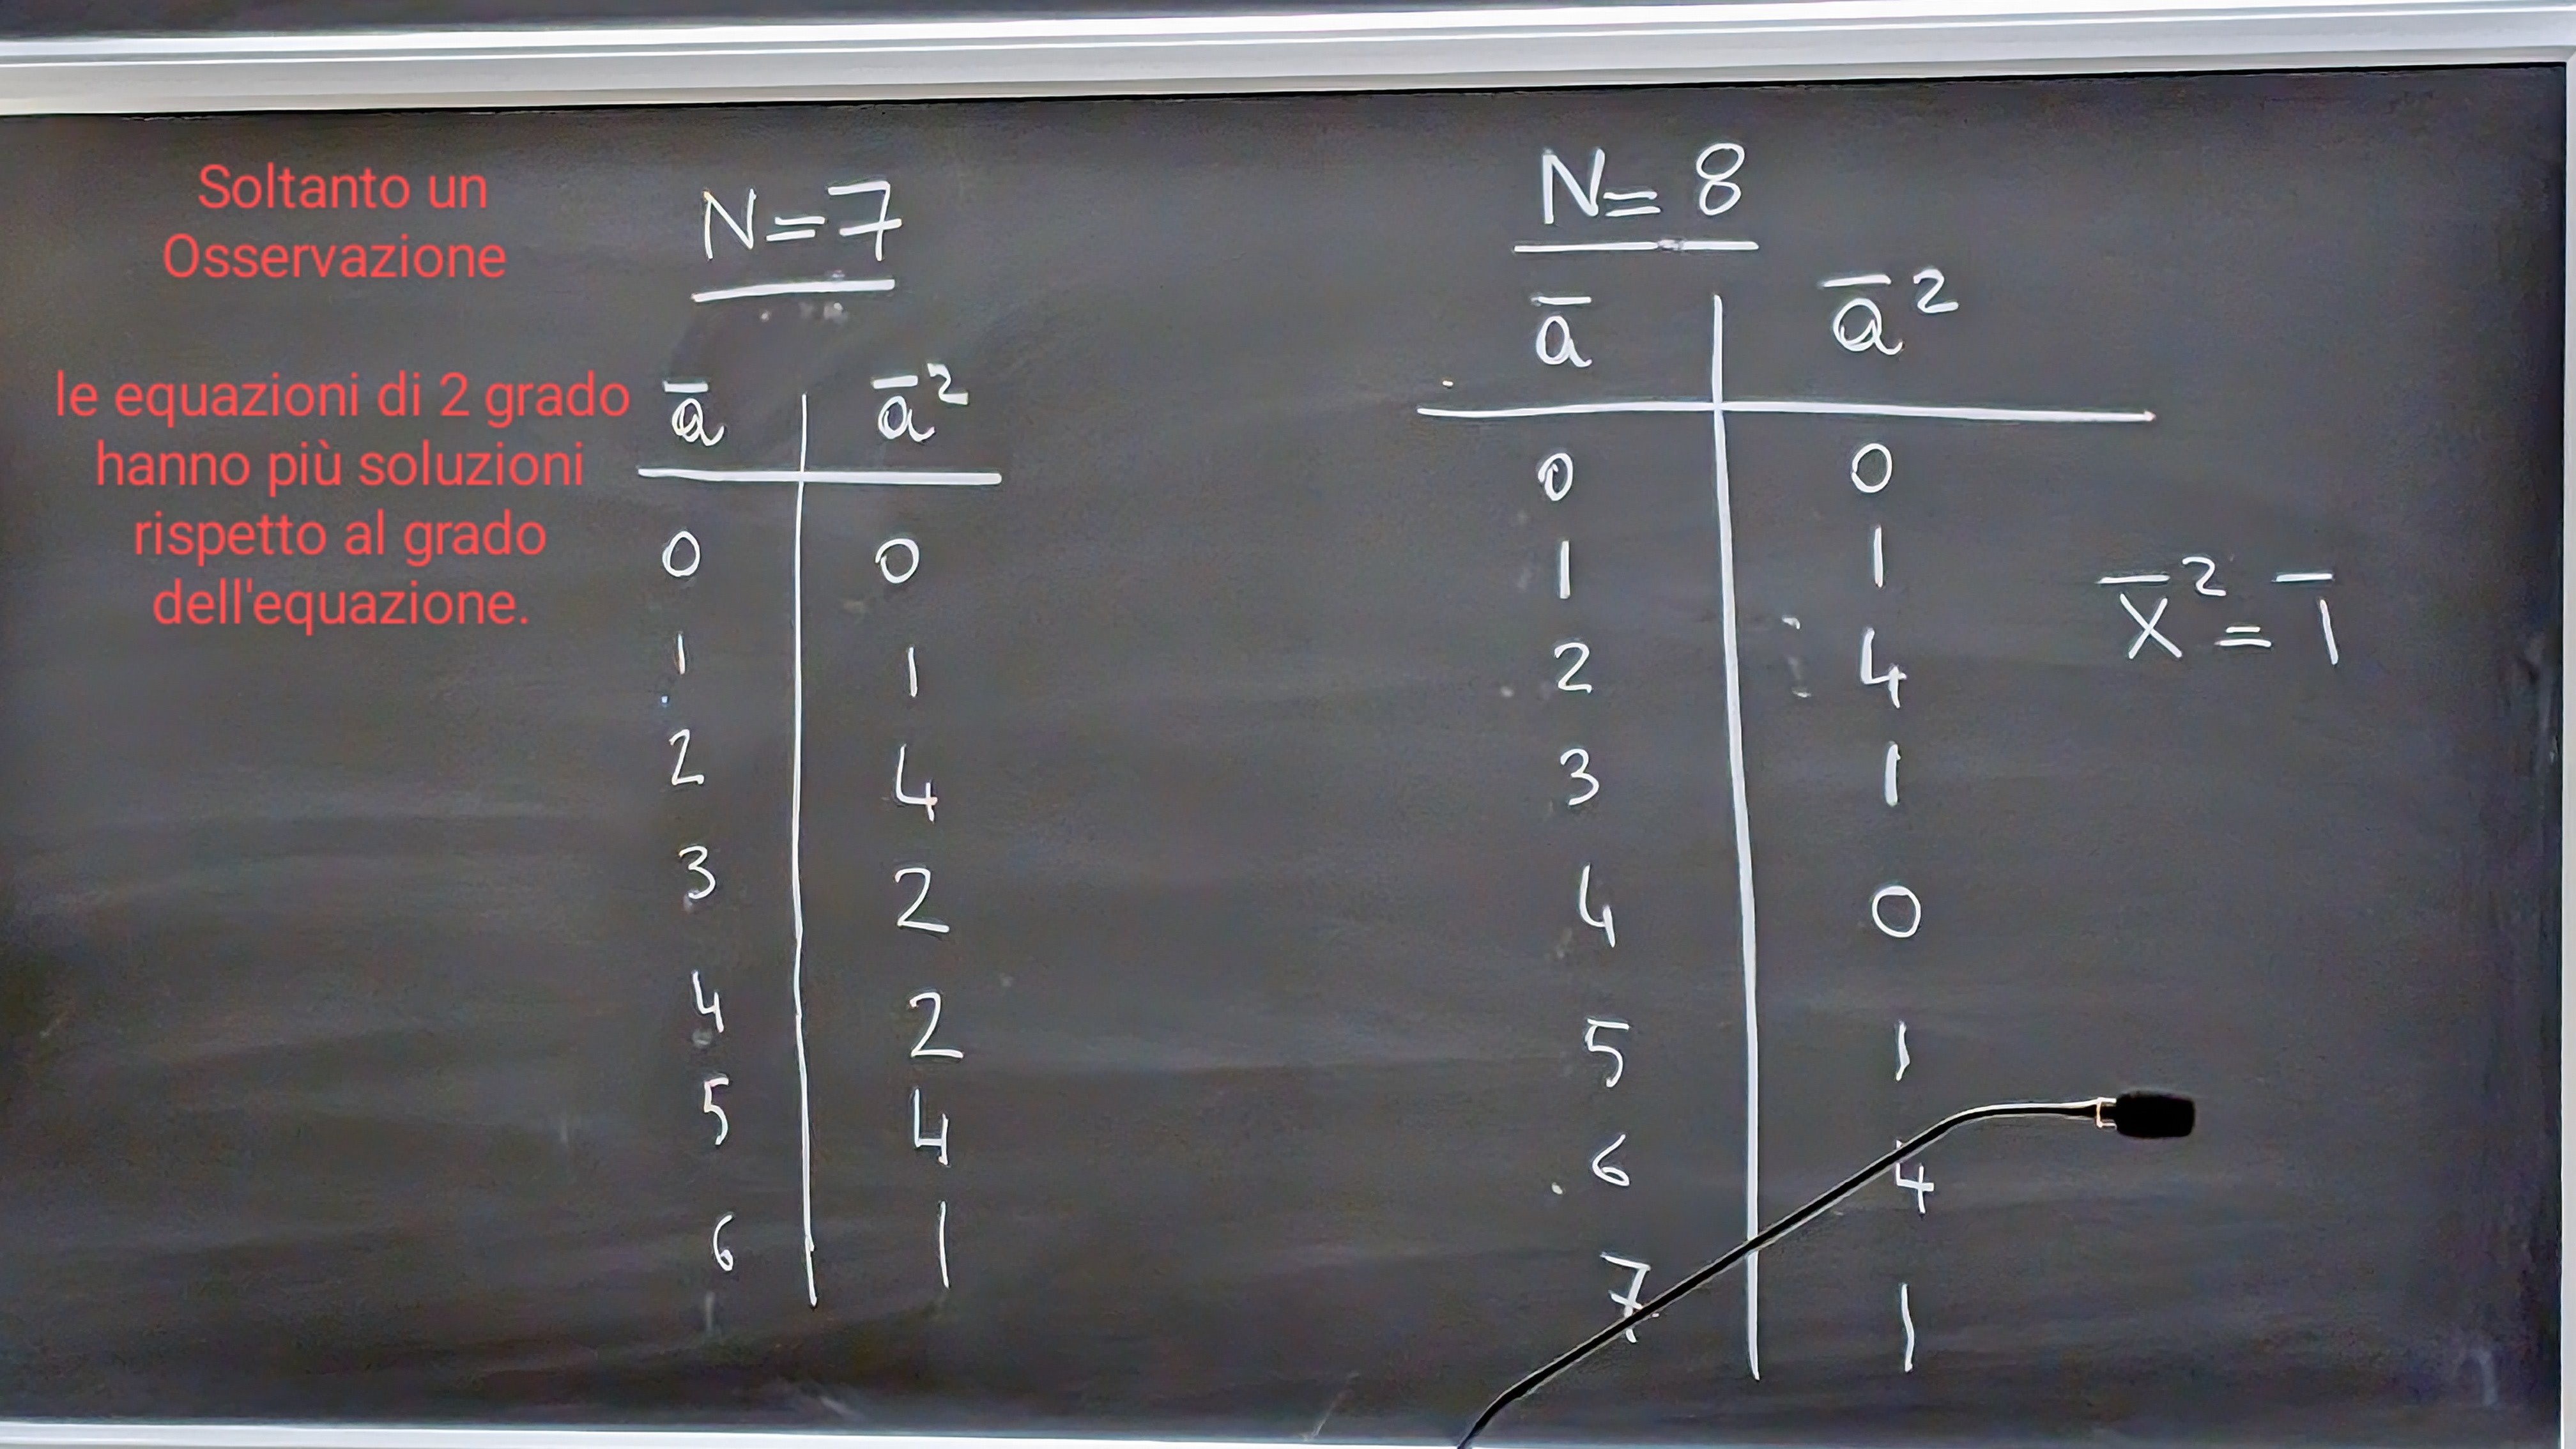 Soltanto un
Osservazione
le equazioni di 2 grado
hanno più soluzioni
rispetto al grado
dell'equazione.
N=7
a̅ a̅²
0 0
1 1
2 4
3 2
4 2
5 4
6 1
N=8
a̅ a̅²
0 0
1 1
2 4
3 1
4 0
5 1
6 4
7 1
X̅² = 1̅